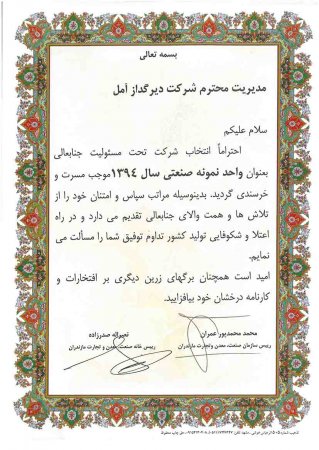 بسمه تعالی
مدیریت محترم شرکت دیرگداز آمل
سلام علیکم
احتراماً انتخاب شرکت تحت مسئولیت جنابعالی
بعنوان واحد نمونه صنعتی سال ۱۳۹٤ موجب مسرت و
خرسندی گردید. بدینوسیله مراتب سپاس و امتنان خود را از
تلاش ها و همت والای جنابعالی تقدیم می دارد و در راه
اعتلا و شکوفایی تولید کشور تداوم توفیق شما را مسألت می
نمایم.
امید است همچنان برگهای زرین دیگری بر افتخارات و
کارنامه درخشان خود بیافزایید.
محمد محمدپور عمران
رییس سازمان صنعت، معدن و تجارت مازندران
نصراله صدرزاده
رییس خانه صنعت، معدن و تجارت مازندران